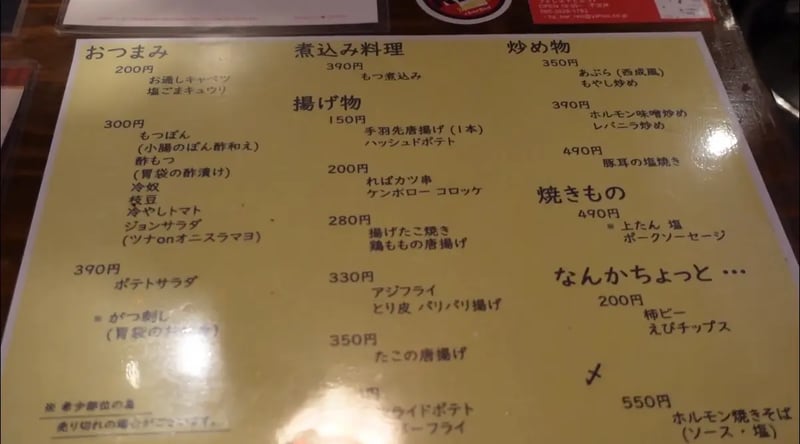 おつまみ
200円
お通しキャベツ
塩ごまキュウリ
300円
もつぽん
(小腸のぽん酢和え)
酢もつ
(胃袋の酢漬け)
冷奴
枝豆
冷やしトマト
ジョンサラダ
(ツナonオニスラマヨ)
390円
ポテトサラダ
※ がつ刺し
(胃袋のお
※ 希少部位の為
売り切れの場合がございます。
煮込み料理
390円
もつ煮込み
揚げ物
150円
手羽先唐揚げ (1本)
ハッシュドポテト
200円
ればカツ串
ケンボロー コロッケ
280円
揚げたこ焼き
鶏ももの唐揚げ
330円
アジフライ
とり皮 パリパリ揚げ
350円
たこの唐揚げ
円
ライドポテト
ーフライ
炒め物
350円
あぶら (西成風)
もやし炒め
390円
ホルモン味噌炒め
レバニラ炒め
490円
豚耳の塩焼き
焼きもの
490円
※ 上たん 塩
ポークソーセージ
なんかちょっと …
200円
柿ピー
えびチップス
〆
550円
ホルモン焼きそば
(ソース・塩)